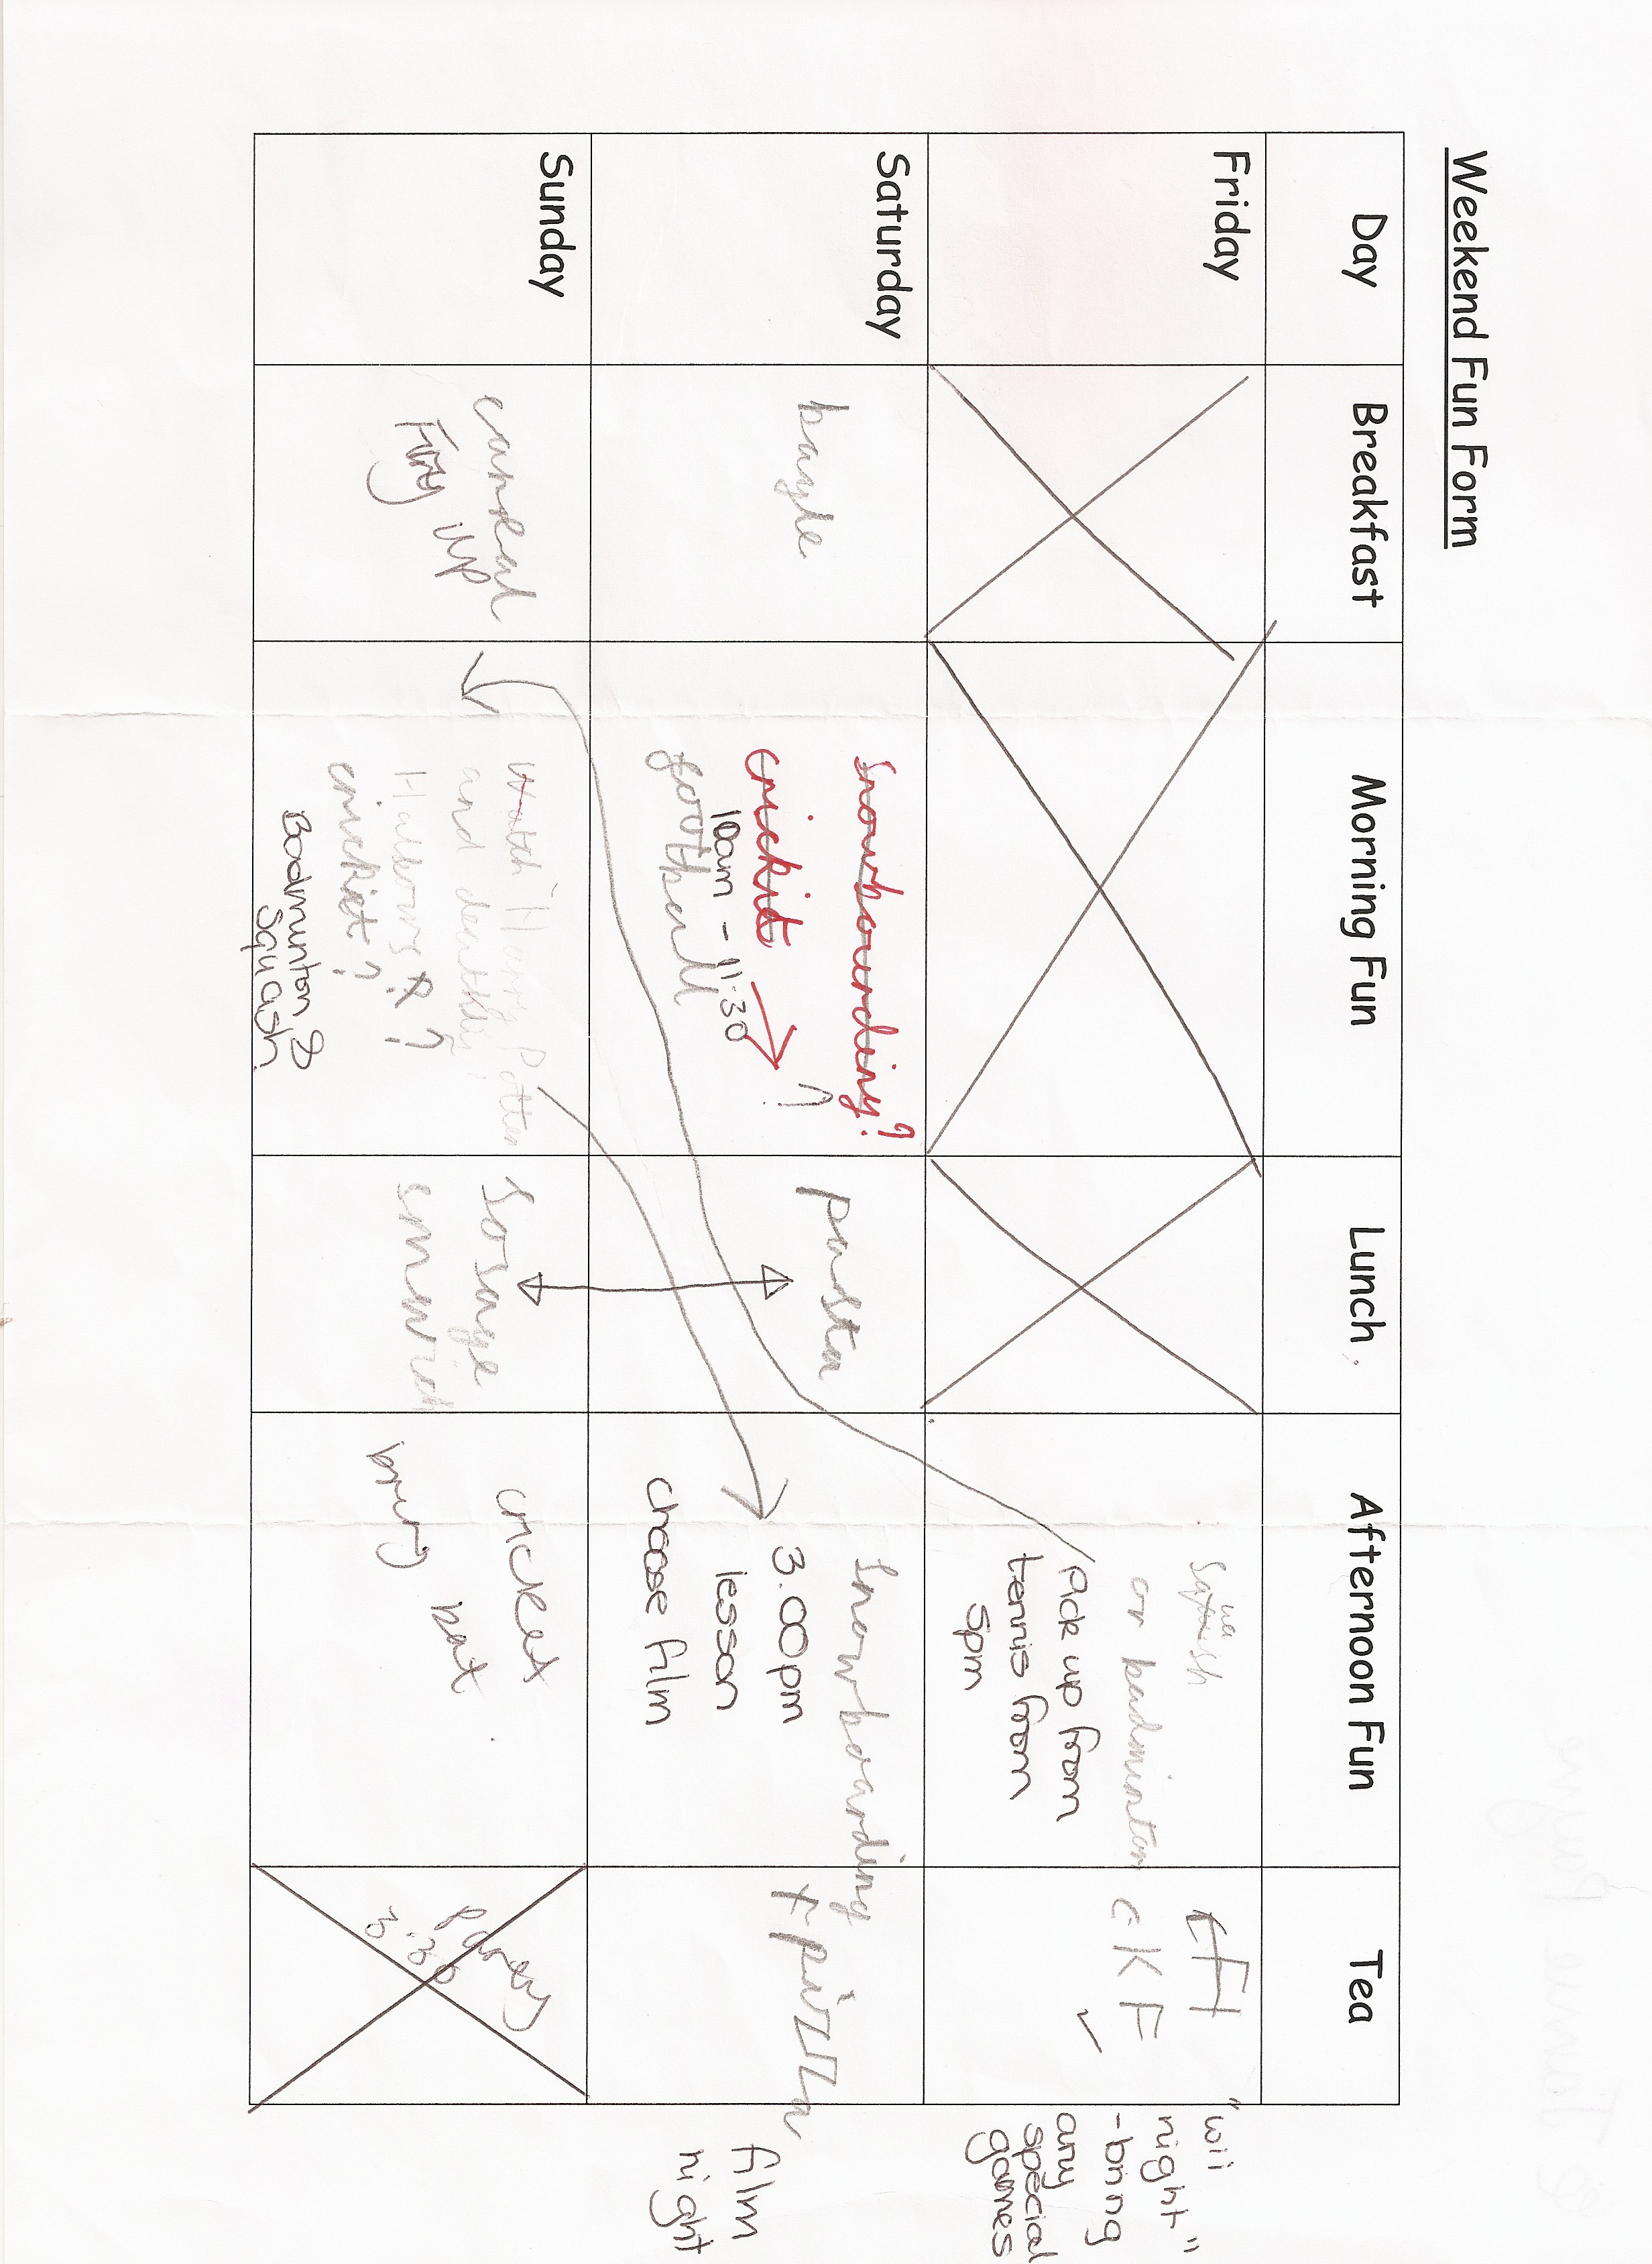 Weekend Fun Form
Day Breakfast Morning Fun Lunch Afternoon Fun Tea
Friday
squash
or badminton
Pick up from
tennis from
5pm
CKF
"wii
night"
-bring
any
special
games
Saturday
bagle
snowbourding?
crickit
?
10am - 11:30
football
pasta
snowboarding
3.00pm
lesson
choose film
+ pizza
film
night
Sunday
Fry up
watch Harry Potter
and deathly
Hallows ?
cricket?
Badminton &
Squash.
sosage
cricket
bring bat
3:30